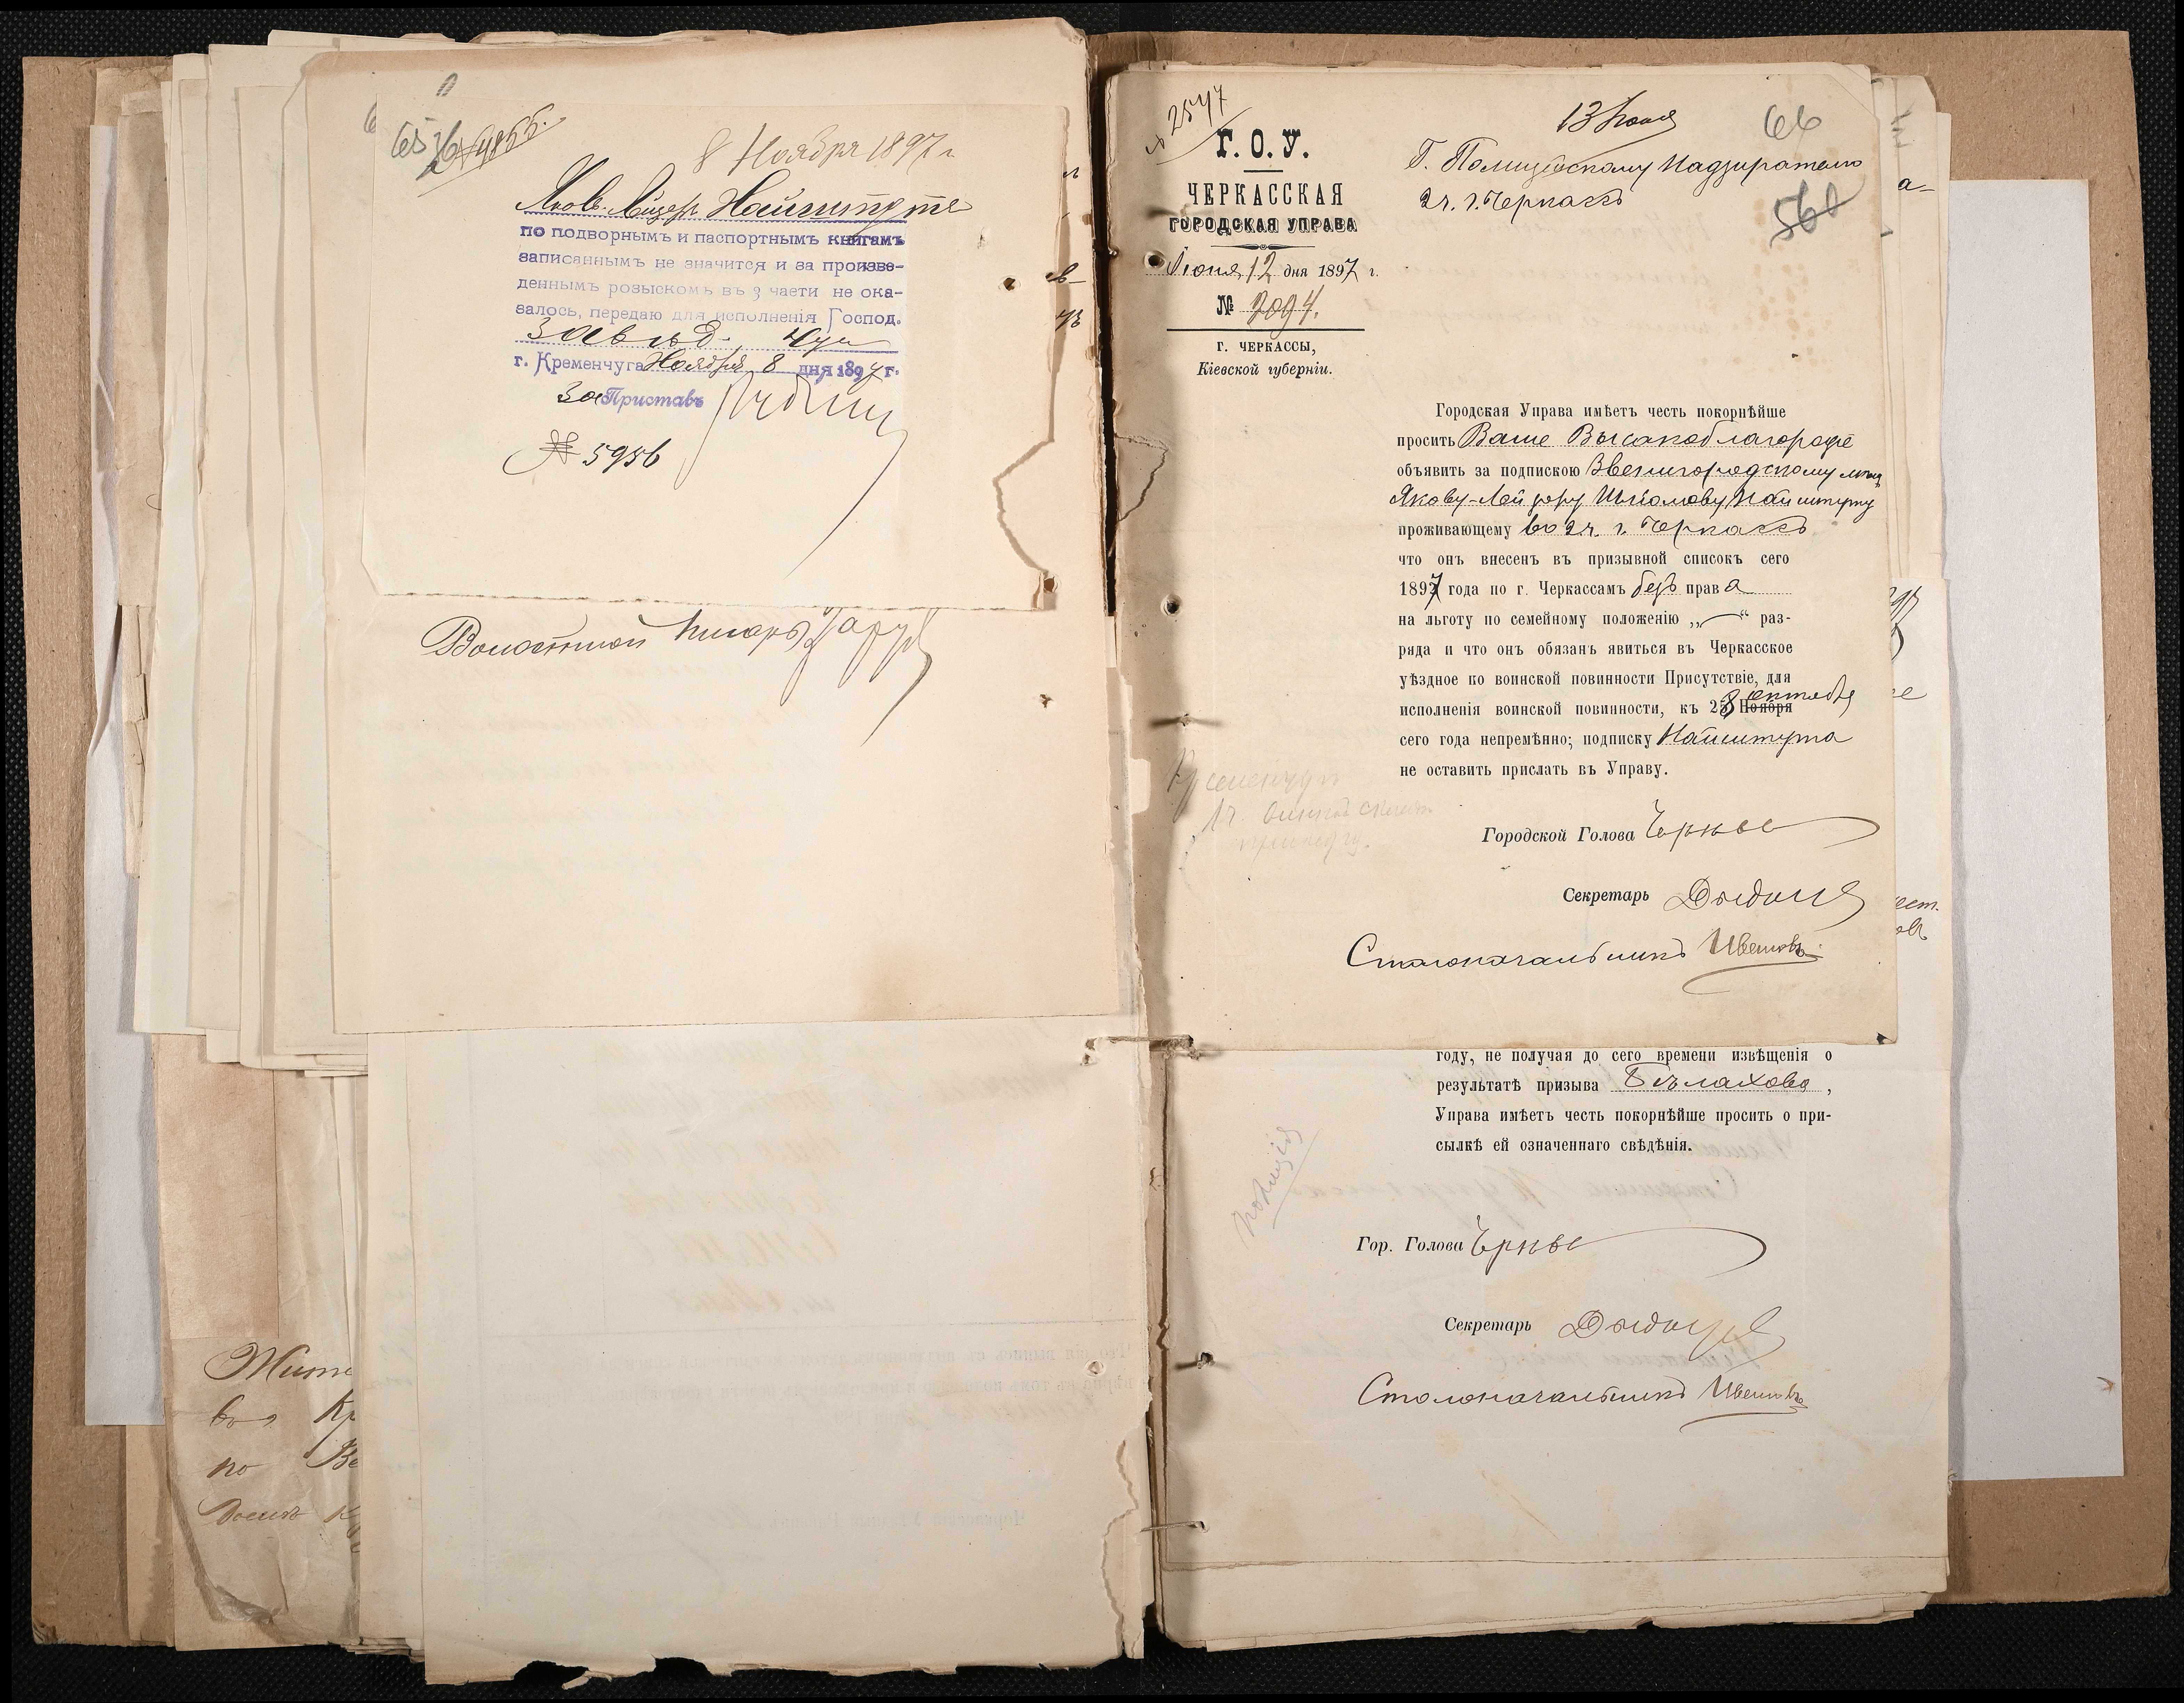 65
8 Ноября 1897 г
Яковъ Лейзеръ Найштутъ
по подворнымъ и паспортнымъ книгамъ
записаннымъ не значится и за произве-
деннымъ розыскомъ въ 3 части не ока-
залось, передаю для исполненія Господ.
Завѣд. 4 уч
г. Кременчуга Ноября 8 дня 1897 г.
За Приставъ
№ 5956
Волостной Писарь
Жите
во Кр
по Ве
№ 2547
13 Іюня
66
Г. О. У.
ЧЕРКАССКАЯ
ГОРОДСКАЯ УПРАВА
Іюня 12 дня 1897 г.
№ 2094.
г. ЧЕРКАССЫ,
Кіевской губерніи.
Г. Полицейскому Надзирателю
2 ч. г. Черкассъ
560
Городская Управа имѣетъ честь покорнѣйше
просить Ваше Высокоблагородіе
объявить за подпискою Звенигородскому мѣщ
Якову-Лейзеру Найштуту
проживающему во 2 ч. г. Черкассъ
что онъ внесенъ въ призывной списокъ сего
1897 года по г. Черкассамъ безъ права
на льготу по семейному положенію „—“ раз-
ряда и что онъ обязанъ явиться въ Черкасское
уѣздное по воинской повинности Присутствіе, для
исполненія воинской повинности, къ 28 Ноября октября
сего года непремѣнно; подписку Найштута
не оставить прислать въ Управу.
Городской Голова
Секретарь
Столоначальникъ
году, не получая до сего времени извѣщенія о
результатѣ призыва Бѣлахова,
Управа имѣетъ честь покорнѣйше просить о при-
сылкѣ ей означеннаго свѣдѣнія.
полиція
Гор. Голова
Секретарь
Столоначальникъ